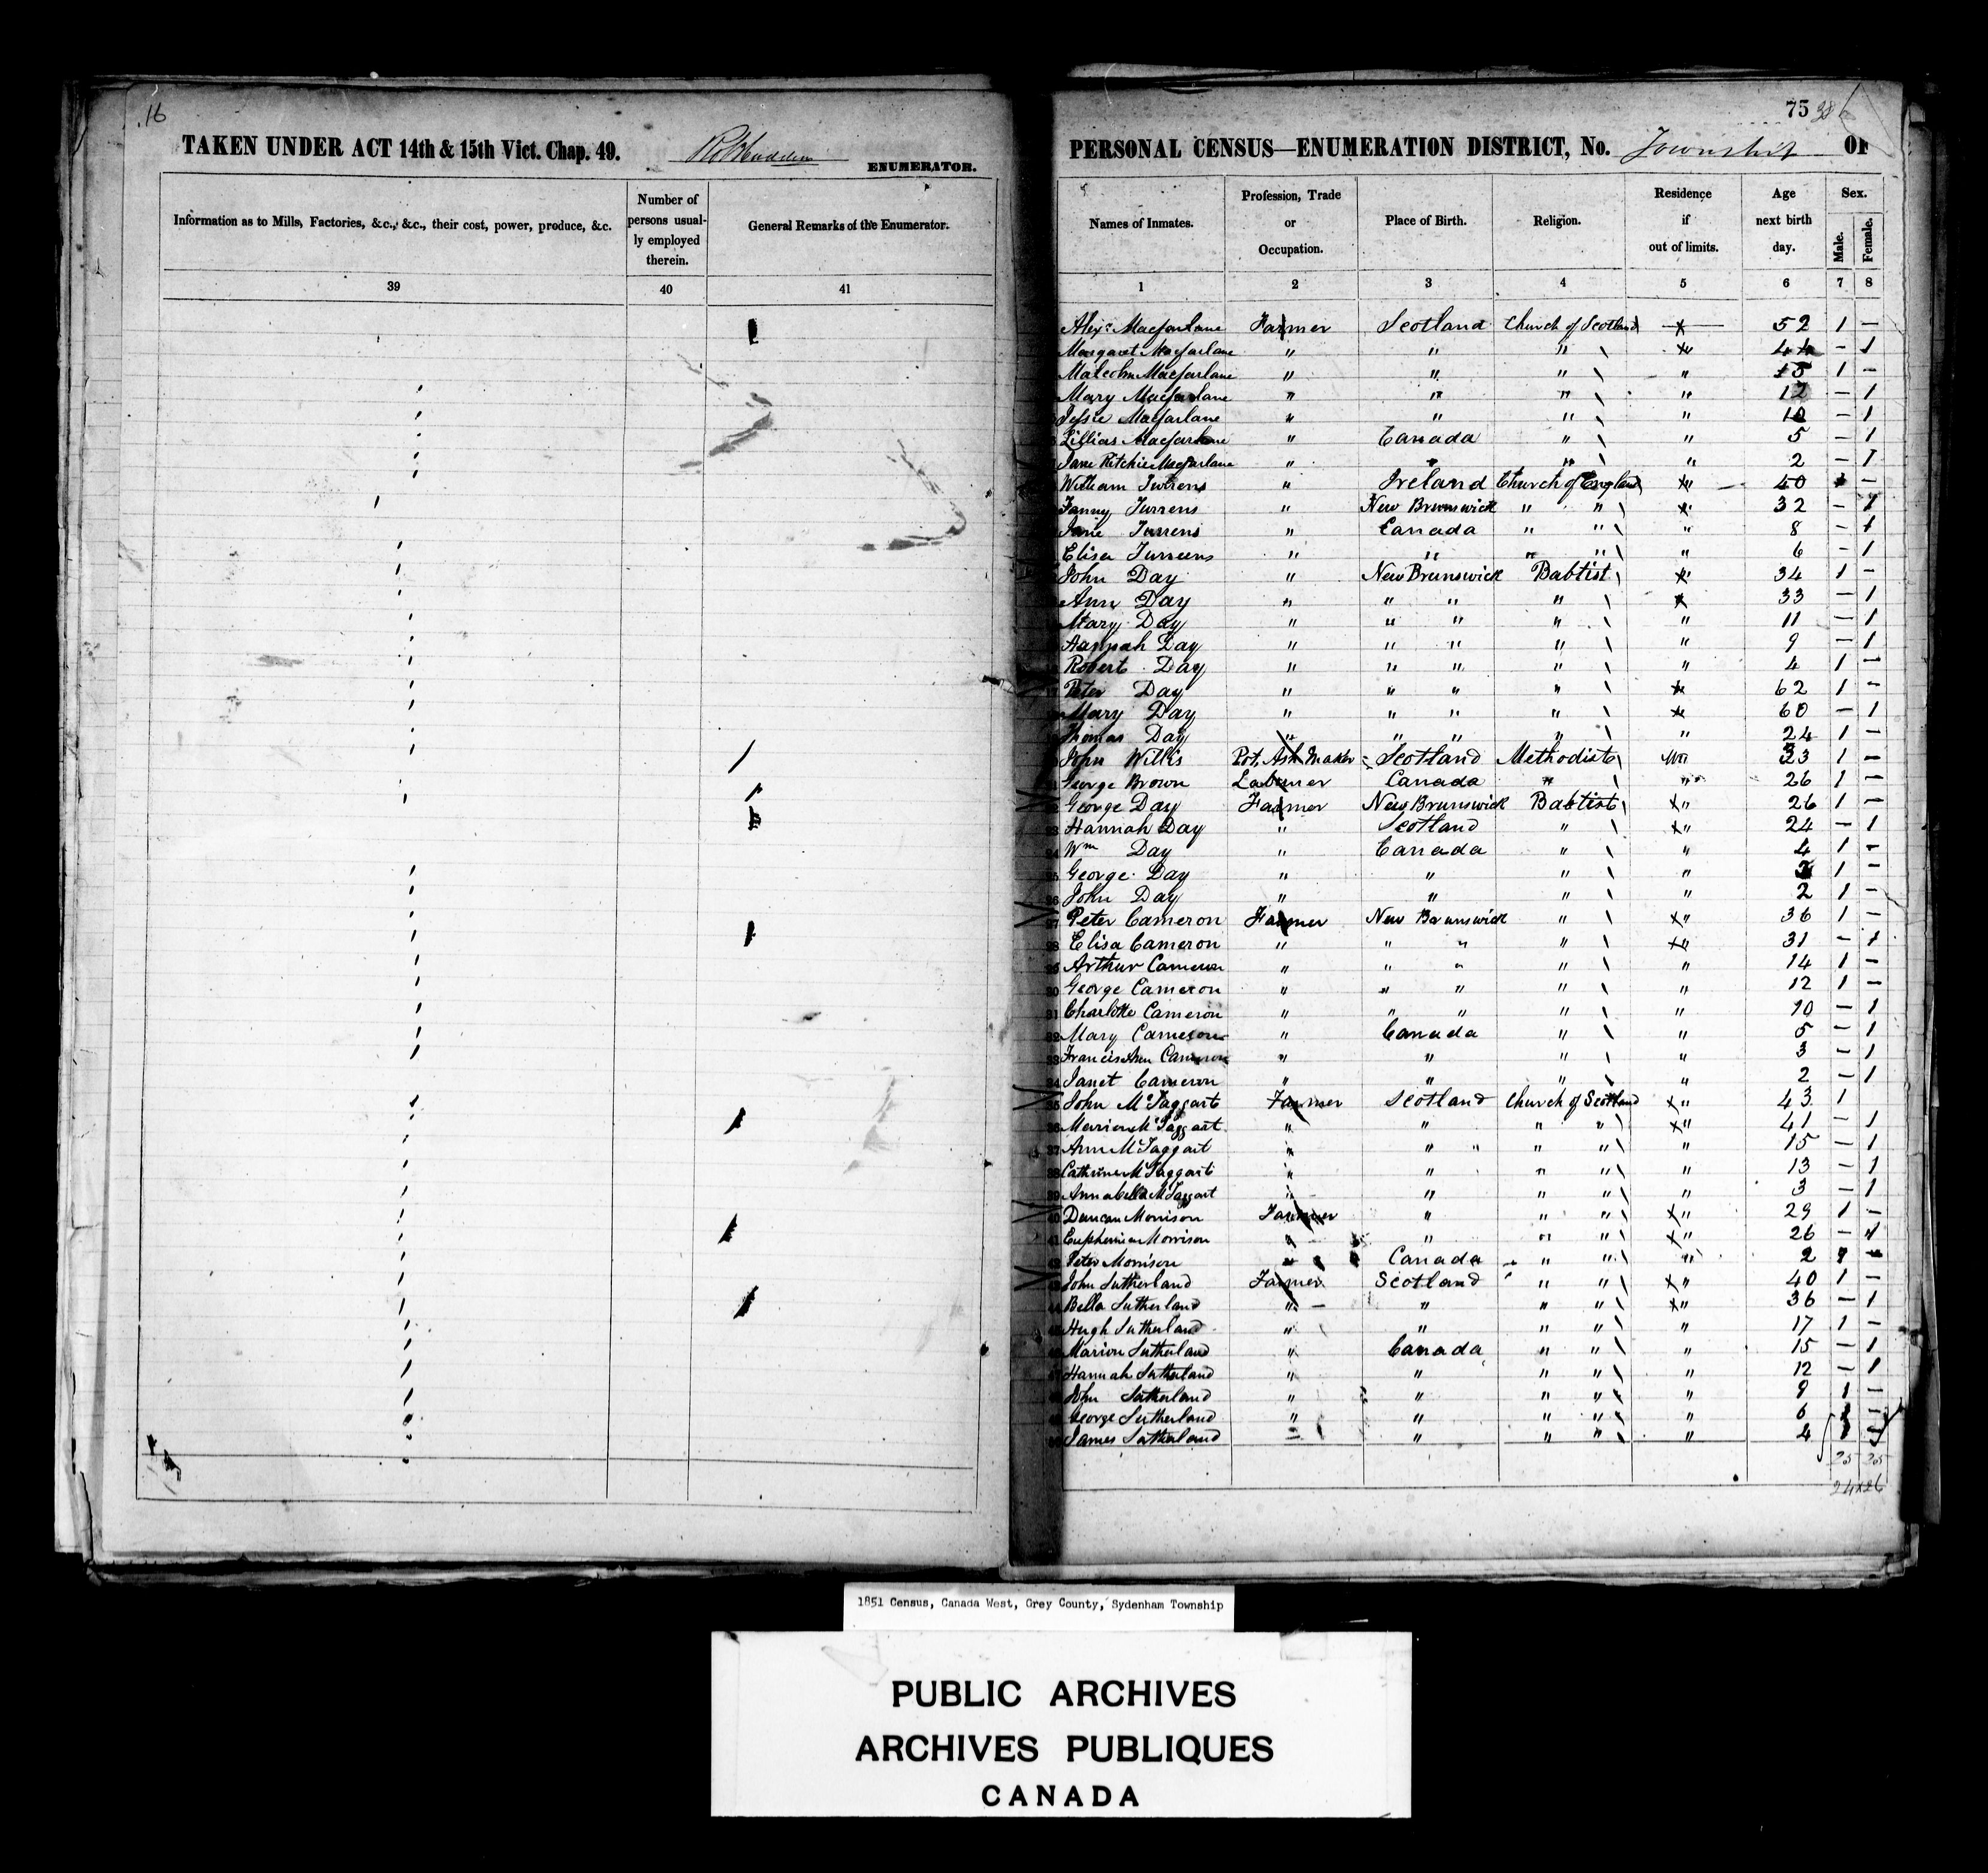 16
TAKEN UNDER ACT 14th & 15th Vict. Chap. 49.
ENUMERATOR.
Information as to Mills, Factories, &c., &c., their cost, power, produce, &c.
Number of persons usually employed therein.
General Remarks of the Enumerator.
39 40 41
75
PERSONAL CENSUS—ENUMERATION DISTRICT, No. Township OF
Names of Inmates.
Profession, Trade or Occupation.
Place of Birth.
Religion.
Residence if out of limits.
Age next birth day.
Sex.
Male. Female.
1 2 3 4 5 6 7 8
Alexr Macfarlane Farmer Scotland Church of Scotland 52 1 —
Margaret Macfarlane " " " " 44 — 1
Malcolm Macfarlane " " " " 15 1 —
Mary Macfarlane " " " " 12 — 1
Jessie Macfarlane " " " " 10 — 1
Lillias Macfarlane " Canada " " 5 — 1
Jane Ritchie Macfarlane " " " " 2 — 1
William Turrens " Ireland Church of England " 40 —
Fanny Turrens " New Brunswick " " " 32 — 1
Jane Turrens " Canada " " " 8 — 1
Elisa Turreens " " " " " 6 — 1
John Day " New Brunswick Babtist " 34 1 —
Ann Day " " " " 33 — 1
Mary Day " " " " " 11 — 1
Hannah Day " " " " " 9 — 1
Robert Day " " " " " 4 1 —
Peter Day " " " " " 62 1 —
Mary Day " " " " " 60 — 1
Thomas Day " " " " " 24 1 —
John Willis Pot, Ash Maker Scotland Methodist 23 1 —
George Brown Labourer Canada " " 26 1 —
George Day Farmer New Brunswick Babtist " 26 1 —
23 Hannah Day " Scotland " " 24 — 1
24 Wm Day " Canada " " 4 1 —
25 George Day " " " " 1 —
26 John Day " " " " 2 1 —
27 Peter Cameron Farmer New Brunswick " " 36 1 —
28 Elisa Cameron " " " " " 31 — 1
29 Arthur Cameron " " " " " 14 1 —
30 George Cameron " " " " " 12 1 —
31 Charlotte Cameron " " " " " 10 — 1
32 Mary Cameron " Canada " " 5 — 1
33 Francis Ann Cameron " " " " 3 — 1
34 Janet Cameron " " " " 2 — 1
35 John McTaggart Farmer Scotland Church of Scotland " 43 1
36 Marion McTaggart " " " " " 41 — 1
37 Ann McTaggart " " " " " " 15 — 1
38 Catherine McTaggart " " " " " 13 — 1
39 Annabella McTaggart " " " " " 3 — 1
40 Duncan Morrison Farmer " " " " 29 1 —
41 Euphemia Morrison " " " " " 26 — 1
42 Peter Morrison " Canada " " " 2 1 —
43 John Sutherland Farmer Scotland " " " 40 1 —
44 Bella Sutherland " " " " " 36 — 1
Hugh Sutherland " " " " " 17 1 —
Marion Sutherland " Canada " " " 15 — 1
Hannah Sutherland " " " " " 12 — 1
John Sutherland " " " " " 1 —
George Sutherland " " " " " 6 1 —
James Sutherland " " " " " 4 1 —
25 25
24 x 26
1851 Census, Canada West, Grey County, Sydenham Township
PUBLIC ARCHIVES
ARCHIVES PUBLIQUES
CANADA